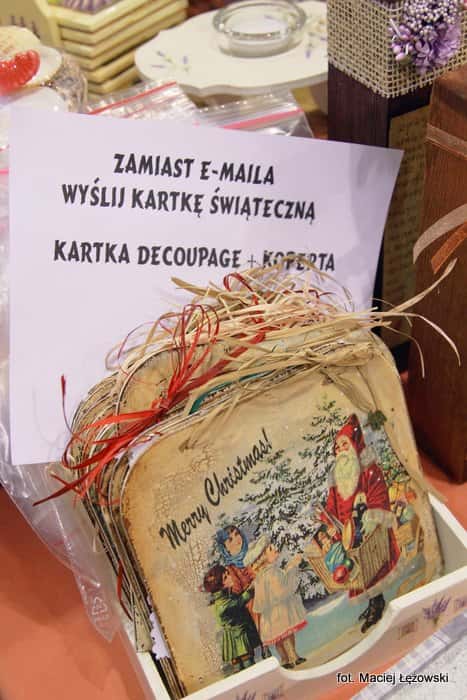 ZAMIAST E-MAILA
WYŚLIJ KARTKĘ ŚWIĄTECZNĄ
KARTKA DECOUPAGE + KOPERTA
Merry Christmas!
fot. Maciej Łężowski